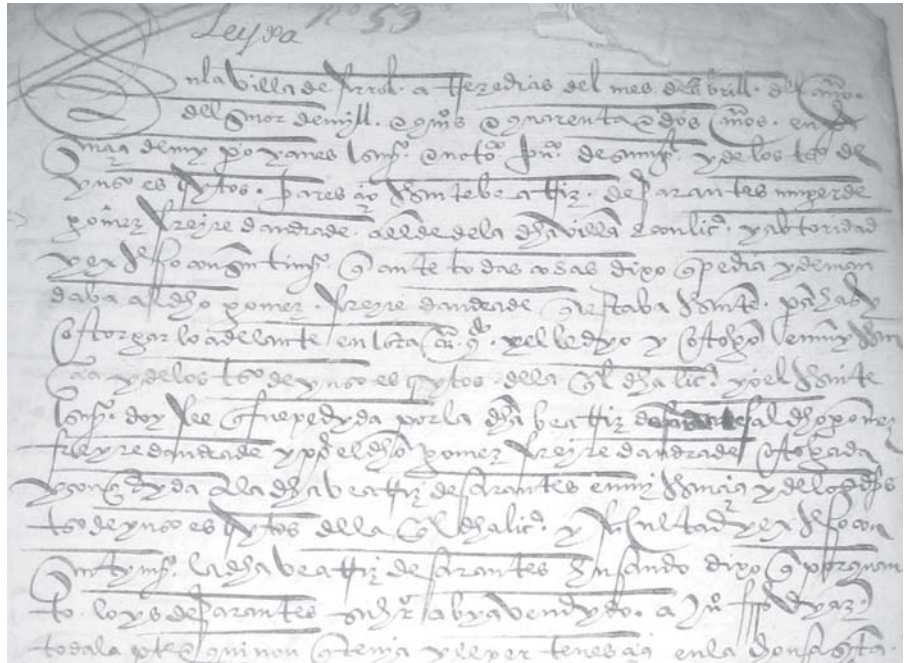 Leyda nº 53
en la villa de ferrol. a treze dias del mes de abrill. del año.
del señor de mill. e quis e quarenta e dos años. en
de my po yanes escno. e noto. puco. de sumt. y de los tso de
yuso esqytos. paresçio presente beatriz. de sarantes muger de
gomez freyre dandrade. allde de la dha villa e con licª. y abtoridad
y expreso consintimyº. q ante todas cosas dixo q pedia y deman
daba al dho gomez. freyre dandrade q estaba presente. pª hazer y
otorgar lo adelante en esta qª. y el le dyo y otorgo en my presen
çia y de los tso de yuso esqytos. de la ql dha licª. yo el presente
escno. doy fee q fue pedyda por la dha beatriz de sarantes al dho gomez
freyre dandrade y por el dho gomez freyre dandrade otorgada
y conçedyda a la dha beatriz de sarantes en my presençia y de los dhos
tso de yuso esqytos de la ql dha licª. y facultad y expreso con
sintymyº. la dha beatriz de sarantes husando dixo q por quan
to. loys de sarantes su hrº abya vendydo. a Juº frrs dyaz
toda la pte e quinon q tenia y le pertenesçia en la